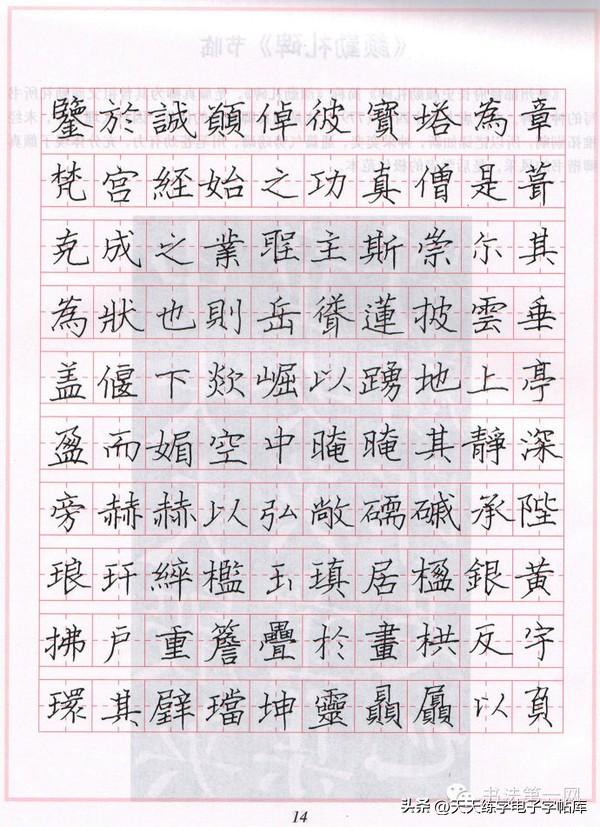 鑒於誠願倬彼寶塔為章
梵宮經始之功真僧是葺
克成之業聖主斯崇尔其
為狀也則岳聳蓮披雲垂
盖偃下欻崛以踴地上亭
盈而媚空中晻晻其靜深
旁赫赫以弘敞礝磩承陛
琅玕綷檻玉瑱居楹銀黃
拂戶重簷疊於畫栱反宇
環其璧璫坤靈贔屭以負
书法第一网
14
头条 @天天练字电子字帖库